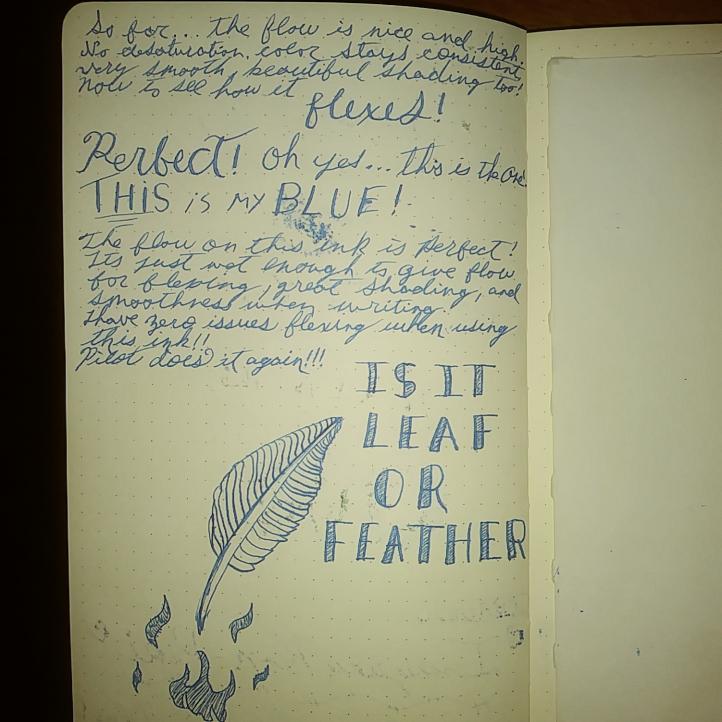 So far... the flow is nice and high.
No desaturation, color stays consistent,
very smooth, beautiful shading too!
Now to see how it flexes!
Perfect! oh yes... this is the one
THIS is MY BLUE!
The flow on this ink is perfect!
Its just wet enough to give flow
for flexing, great shading, and
smoothness when writing.
I have zero issues flexing when using
this ink!!
Pilot does it again!!!
IS IT
LEAF
OR
FEATHER